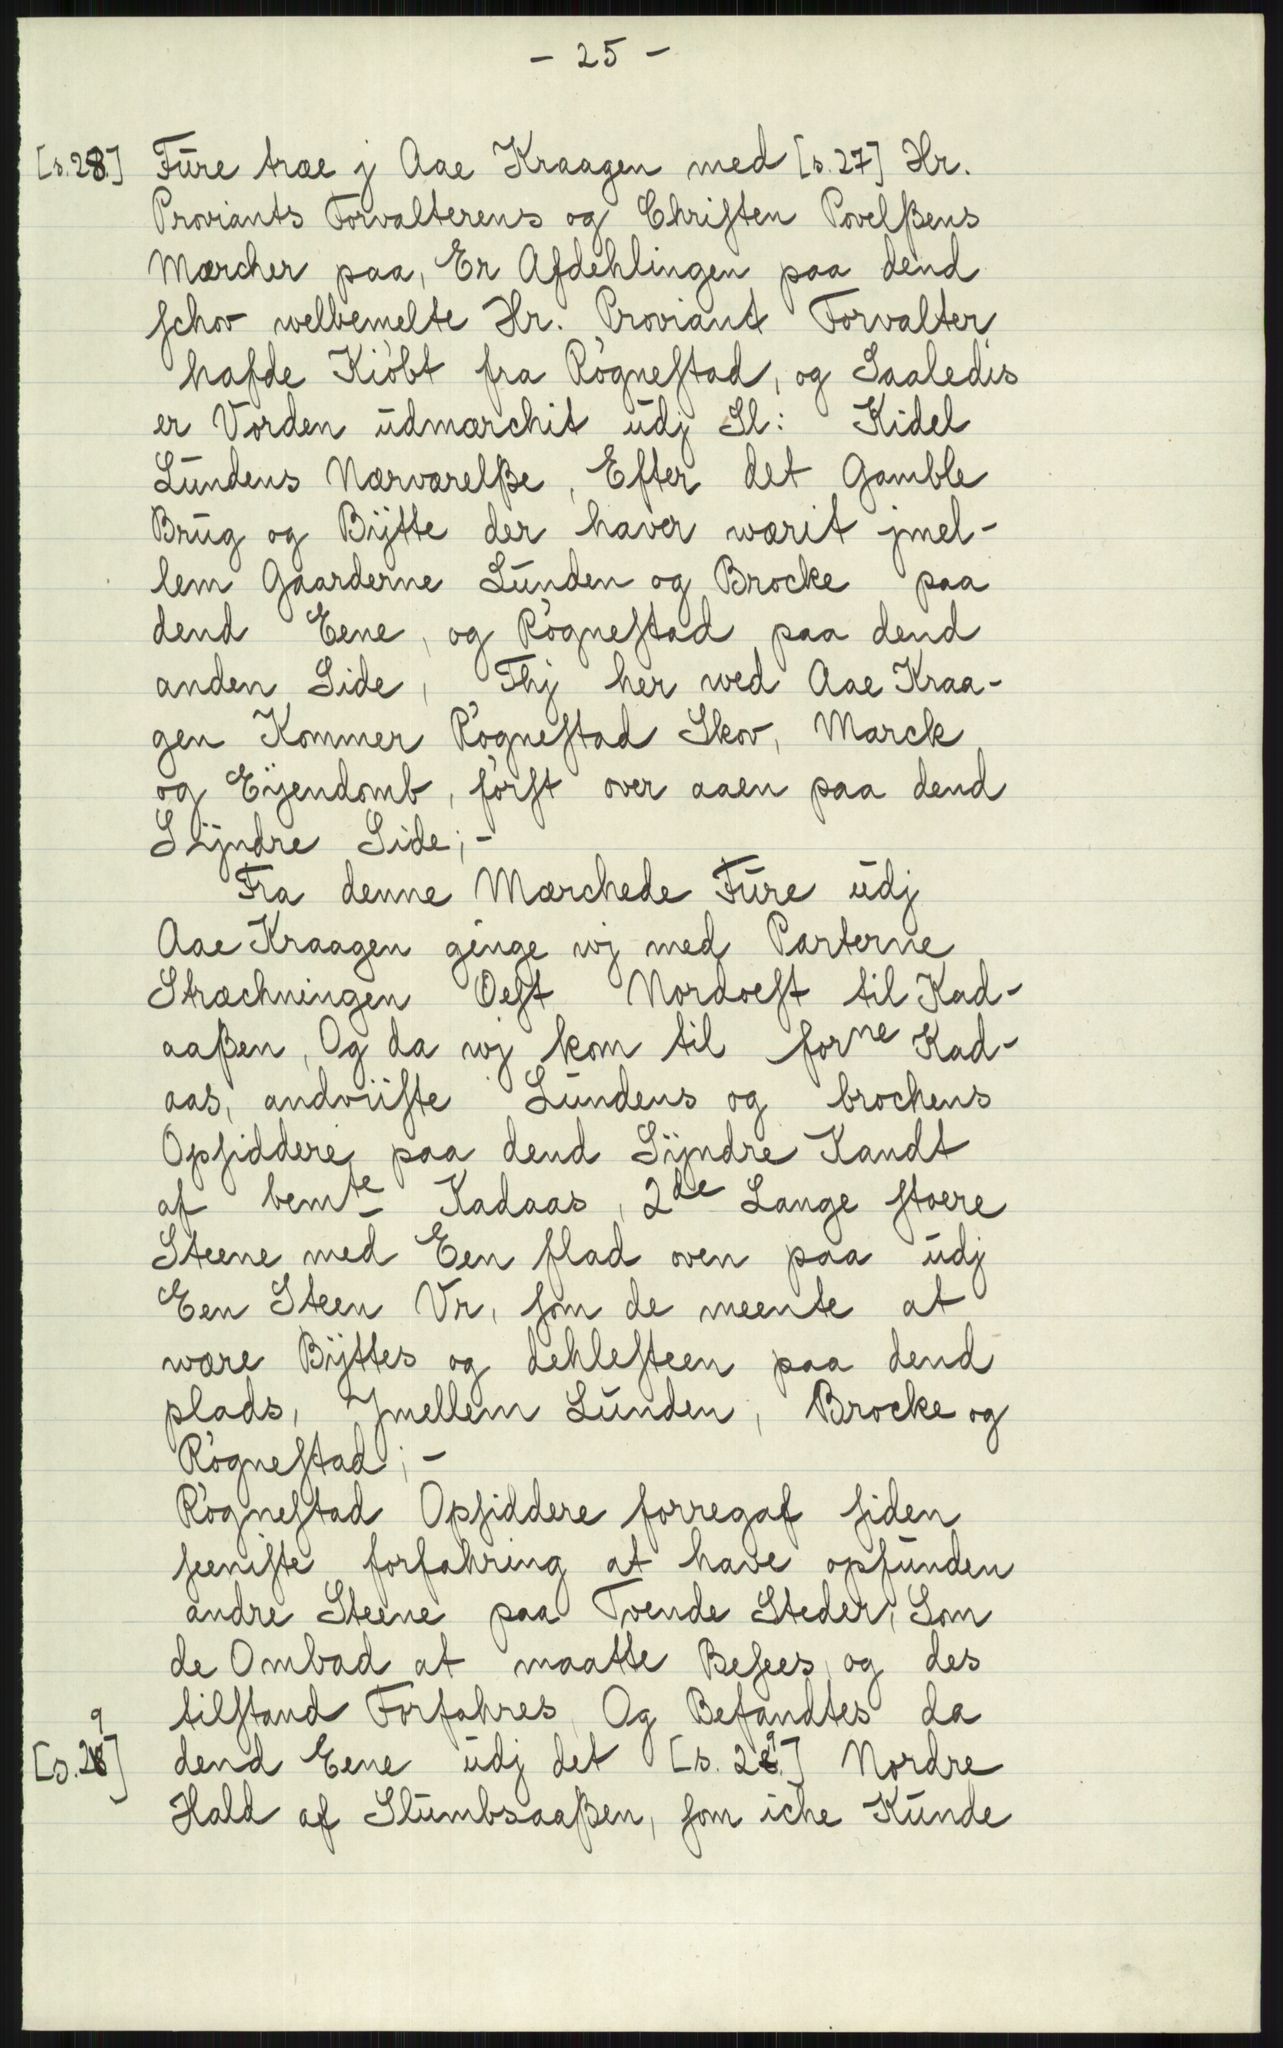 - 25 -
[s.28] Fŭre træ j Aae Kraagen med [s.27] Hr.
Proviants Forvalterens og Chriſten Povelßens
Mærcher paa, Er Afdehlingen paa dend
ſchov welbemelte Hr. Proviant Forvalter
hafde Kiöbt fra Rögneſtad, og Saaledis
er Vorden ŭdmærchit ŭdj Sl: Kidel
Lŭndens Nærværelße, Efter det Gamble
Brŭg og Bÿtte der haver wærit jmel-
lem Gaarderne Lŭnden og Brocke paa
dend Eene, og Rögneſtad paa dend
anden Side, Thj her wed Aae Kraa-
gen Kommer Rögneſtad Skov, Marck
og Eÿendomb, förſt over aaen paa dend
Sÿndre Side; -
Fra denne Mærchede Fŭre ŭdj
Aae Kraagen ginge wj med Parterne
Stræchningen Oeſt Nordoeſt til Kad-
aaßen, Og da wj kom til forne Kad-
aas, andviiſte Lŭndens og brockens
Opſiddere paa dend Sÿndre Kandt
af bemte Kadaas, 2de Lange ſtoere
Steene med Een flad oven paa ŭdj
Een Steen Vr, ſom de meente at
være Bÿttes og dehleſteen paa dend
plads, Jmellem Lŭnden, Brocke og
Rögneſtad; -
Rögneſtad Opſiddere forregaf ſiden
ſeeniſte forfahring at have opfŭnden
andre Steene paa Tvende Steder, Som
de Ombad at maatte Beſees, og des
tilſtand Forfahres, Og Befandtes da
[s.29] dend Eene ŭdj det [s. 29] Nordre
Hald af Slŭmbsaaßen, ſom iche Kŭnde